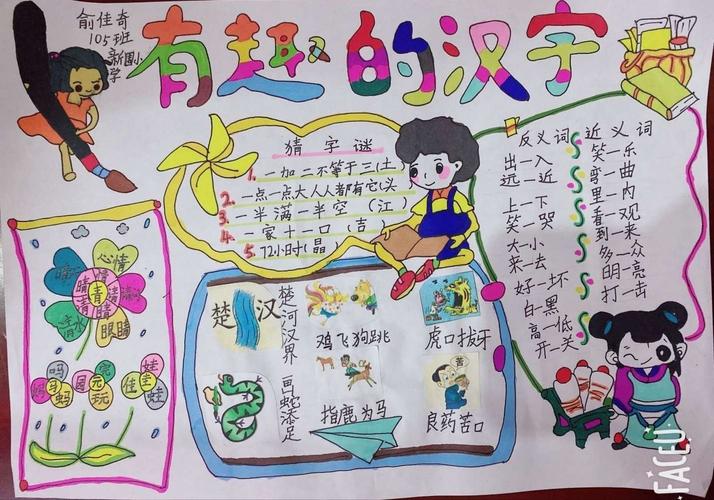 俞佳奇
105班
新国小
学
有趣的汉字
猜字谜
1. 一加二不等于三(土)
2. 一点一大人人都有它(头
3. 一半满一半空(江)
4. 一家十一口(吉
5. 72小时(晶
反义词
出—入
远—近
上—下
笑—哭
大—小
来—去
好—坏
白—黑
高—低
开—关
近义词
笑—乐
弯—曲
里—内
看—观
到—来
多—众
明—亮
打—击
心情
晴
情
睛
青
清
清水
眼睛
吗
妈
马
蚂
园
元
完
玩
佳
娃
圭
蛙
楚
汉
楚河汉界
画蛇添足
鸡飞狗跳
虎口拔牙
指鹿为马
良药苦口
FACEU